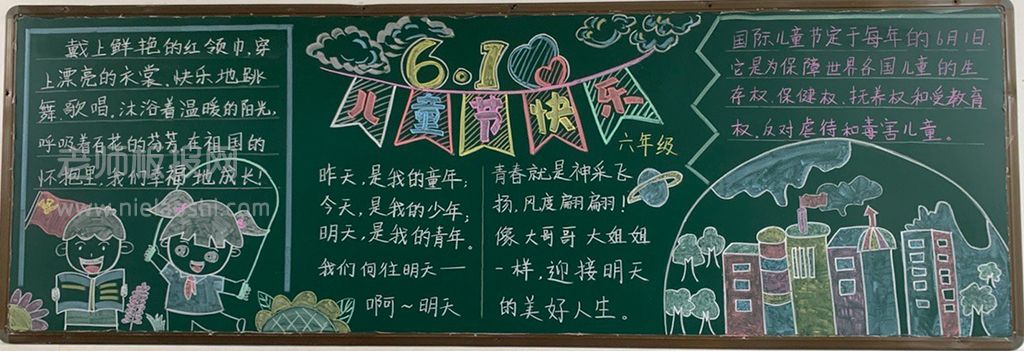 戴上鲜艳的红领巾,穿
上漂亮的衣裳.快乐地跳
舞.歌唱.沐浴着温暖的阳光,
呼吸着百花的芬芳,在祖国的
怀抱里,我们幸福地成长!
老师板报网
6.1
儿童节快乐
六年级
昨天,是我的童年;
今天,是我的少年;
明天,是我的青年。
我们向往明天——
啊~明天
青春就是神采飞
扬,风度翩翩!
像大哥哥大姐姐
一样,迎接明天
的美好人生。
国际儿童节定于每年的6月1日.
它是为保障世界各国儿童的生
存权.保健权.抚养权和受教育
权.反对虐待和毒害儿童。